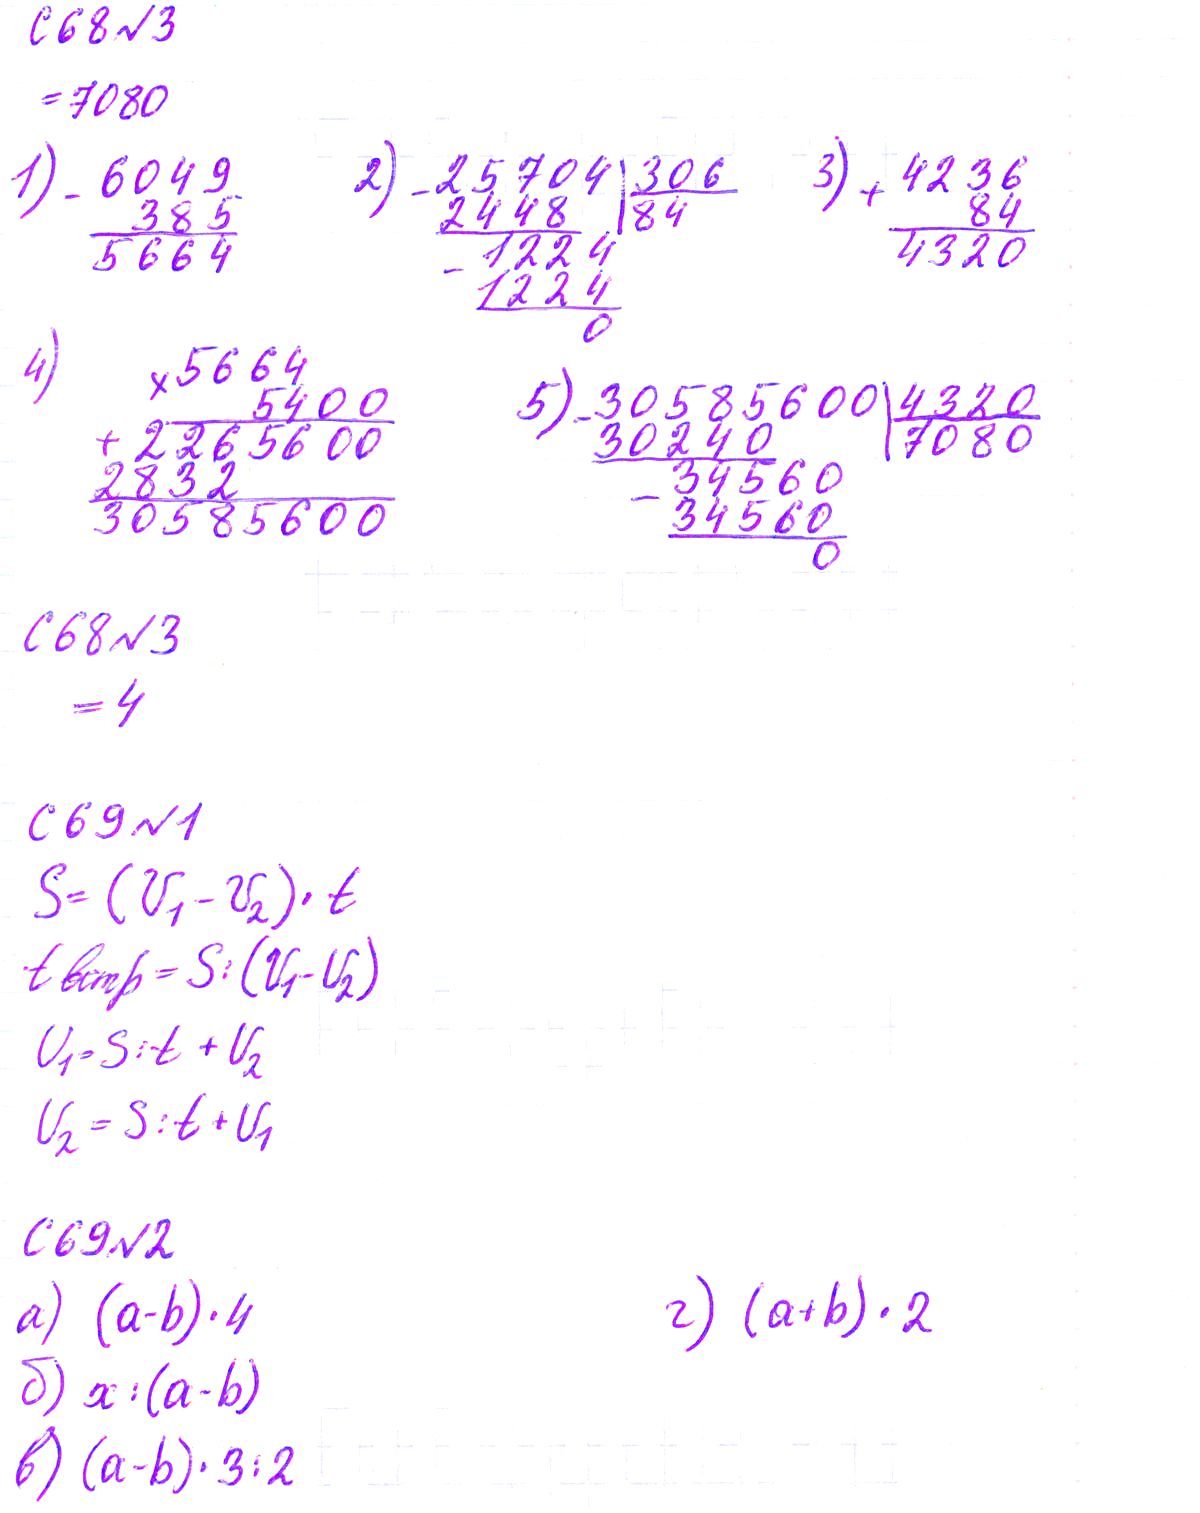 С68№3
=7080
1) - 6049
385
5664
2) - 25704 | 306
2448 | 84
- 1224
1224
0
3) + 4236
84
4320
4)
× 5664
5400
+ 2265600
2832
30585600
5) - 30585600 | 4320
30240 | 7080
- 34560
34560
0
С68№3
= 4
С69№1
S = (V₁ - V₂) · t
t встр = S : (V₁ - V₂)
V₁ = S : t + V₂
V₂ = S : t + V₁
С69№2
а) (a-b) · 4
г) (a+b) · 2
б) x : (a-b)
в) (a-b) · 3 : 2